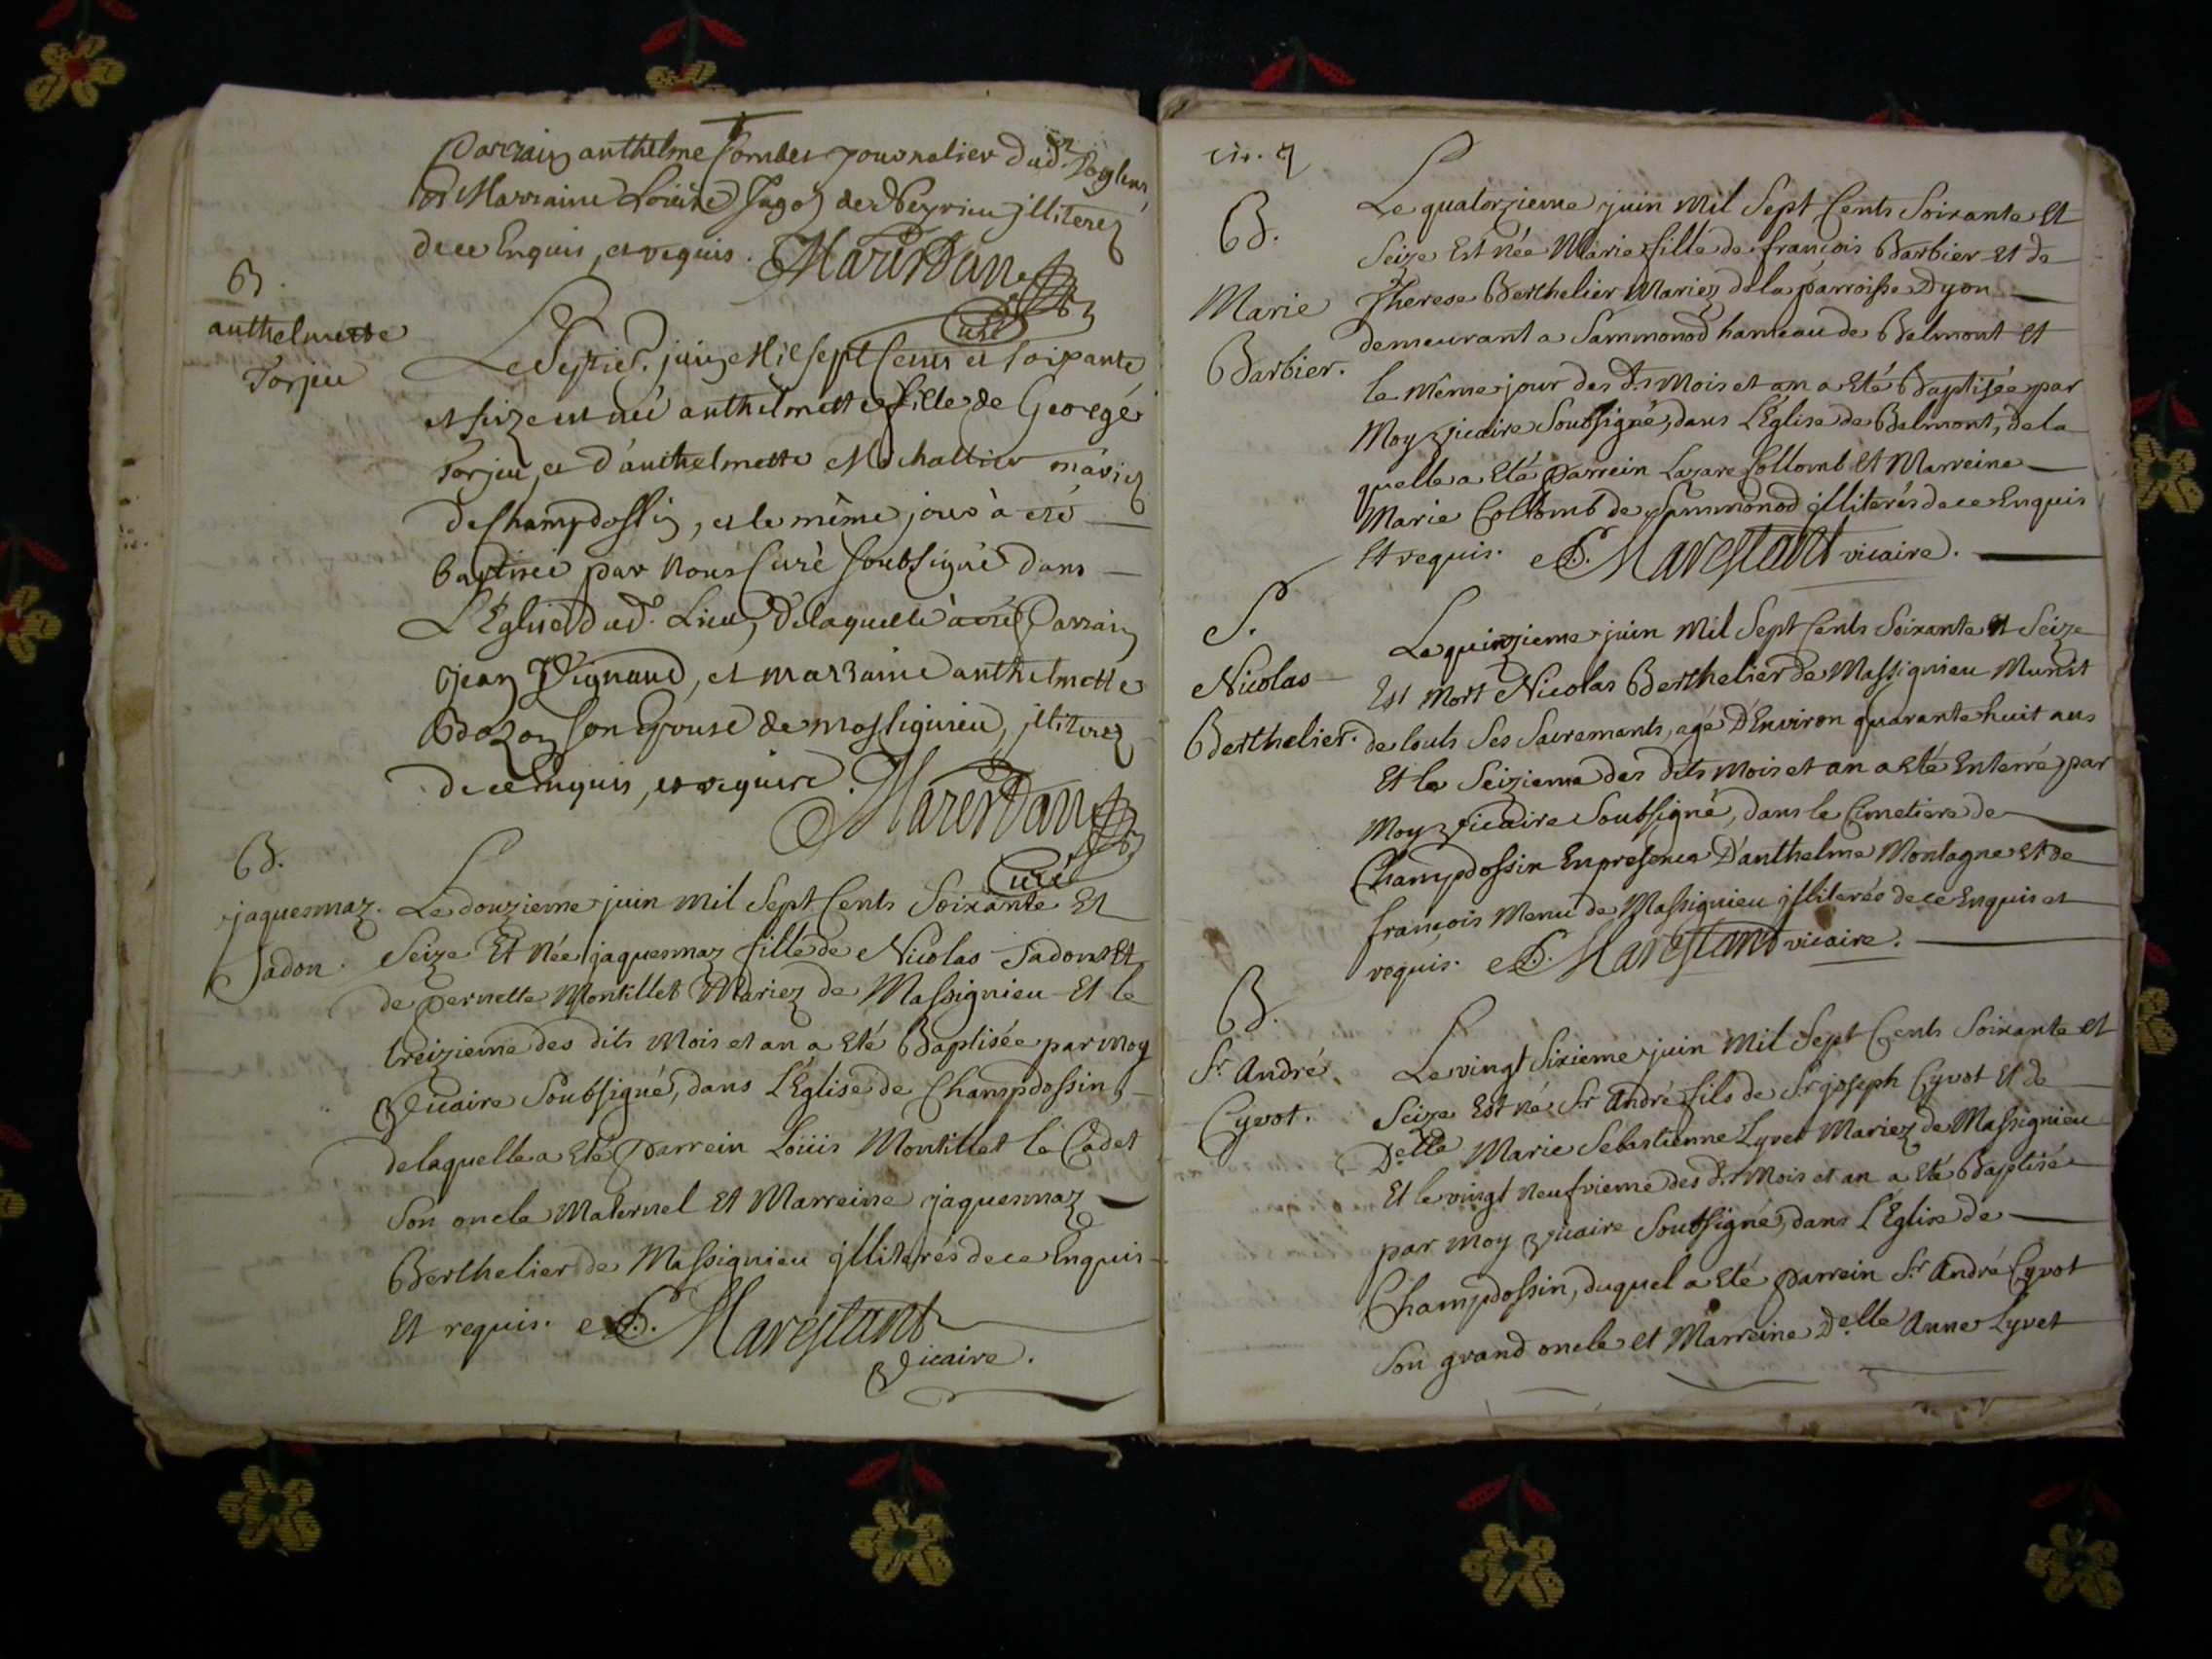 Parrain anthelme Combet journalier dud.
et Marraine Loüise Jago de Peyrieu jlliterez
de ce Enquis, et requis. Marestan
Curé
B.
anthelmette
Torjeu
Le Septie. juin Mil sept Cens et soixante
et seize est née anthelmette fille de George
Torjeu, et d'anthelmette Mochattier mariez
de Champdossin, et le même jour à eté
Baptisée par Nous Curé soubsigné dans
L'Eglise dud. Lieu, de laquelle à été Parrain
Jean Vignaud, et marraine anthelmette
Bozon son Epouse de massignieu, jlliterez
de ce Enquis, et requis. Marestan
Curé
B.
jaquesmaz.
Jadon.
Le douzieme juin mil Sept Cents Soixante Et
Seize Et Née jaquesmaz fille de Nicolas Jadont Et
de pernette Montillet Mariez de Massignieu Et le
treizieme des dits Mois et an a Eté Baptisée par moy
Vicaire Soubsigné, dans L'Église de Champdossin,
de laquelle a Eté Parrein Loüis Montillet le Cadet
Son oncle Maternel Et Marreine jaquesmaz
Berthelier de Massignieu jlliterés de ce Enquis
Et requis. Marestant
Vicaire.
B.
Marie
Barbier.
Le quatorzieme juin Mil Sept Cents Soixante Et
Seize Est Née Marie fille de françois Barbier Et de
Therese Berthelier Mariez de la parroisse Dyon
demeurant a Sammonod hameau de Belmont Et
le Même jour des d.s Mois et an a Eté Baptisée par
Moy Vicaire Soubsigné, dans L'Église de Belmont, de la
quelle a Eté Parrein Lazare Collomb Et Marreine
Marie Collomb de Sammonod jlliterés de ce Enquis
Et requis. Marestant vicaire.
S.
Nicolas
Berthelier.
Le quinzieme juin Mil Sept Cents Soixante Et Seize
Est Mort Nicolas Berthelier de Massignieu Munit
de touts Ses Sacrements, agé D'Environ quarante huit ans
Et le Seizieme des dits Mois et an a Eté Enterré par
Moy Vicaire Soubsigné, dans le Cimetiere de
Champdossin En presence D'anthelme Montagne Et de
françois Menu de Massignieu jlliterés de ce Enquis et
requis. Marestant vicaire.
B.
Sr. André
Cyvot.
Le vingt Sixieme juin Mil Sept Cents Soixante et
Seize Est né Sr. André fils de Sr. joseph Cyvot Et de
Delle Marie Sebastienne Lyvet Mariez de Massignieu
Et le vingt Neufvieme des d.s Mois et an a Eté Baptisé
par moy Vicaire Soubsigné, dans L'Église de
Champdossin, duquel a Eté Parrein Sr. André Cyvot
Son grand oncle et Marreine Delle Anne Lyvet